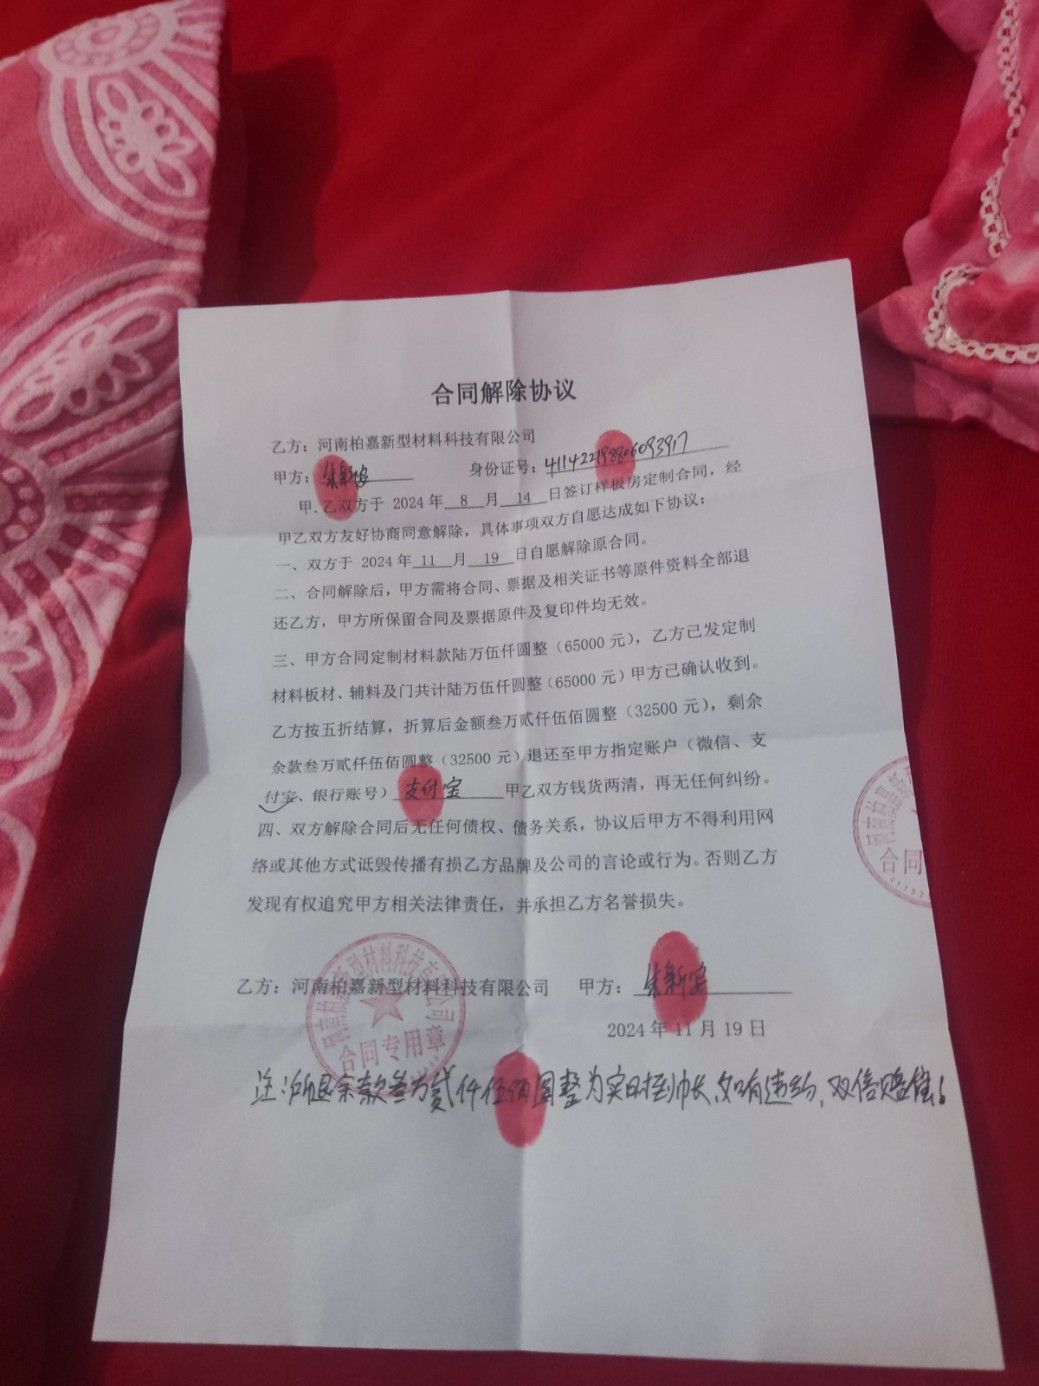 合同解除协议
乙方：河南柏嘉新型材料科技有限公司
甲方：朱新安 身份证号：411422198806093917
甲.乙双方于 2024年 8 月 14 日签订样板房定制合同，经
甲乙双方友好协商同意解除，具体事项双方自愿达成如下协议：
一、双方于 2024年 11 月 19 日自愿解除原合同。
二、合同解除后，甲方需将合同、票据及相关证书等原件资料全部退
还乙方，甲方所保留合同及票据原件及复印件均无效。
三、甲方合同定制材料款陆万伍仟圆整（65000元），乙方已发定制
材料板材、辅料及门共计陆万伍仟圆整（65000元）甲方已确认收到。
乙方按五折结算，折算后金额叁万贰仟伍佰圆整（32500元），剩余
余款叁万贰仟伍佰圆整（32500元）退还至甲方指定账户（微信、支
付宝、银行账号） 支付宝 甲乙双方钱货两清，再无任何纠纷。
四、双方解除合同后无任何债权、债务关系，协议后甲方不得利用网
络或其他方式诋毁传播有损乙方品牌及公司的言论或行为。否则乙方
发现有权追究甲方相关法律责任，并承担乙方名誉损失。
乙方：河南柏嘉新型材料科技有限公司 甲方：朱新安
合同专用章
合同
2024年11月19日
注：所退余款叁万贰仟伍佰圆整为实时到帐，如有违约，双倍赔偿！